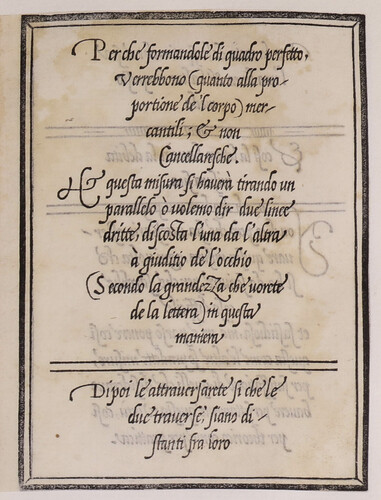 Perche formandole di quadro perfetto,
verrebbono (quanto alla pro-
portione de l corpo) mer-
cantili; & non
Cancellaresche.
Et questa misura si hauerà tirando un
parallelo ò volemo dir due linee
dritte, discosta l'una da l'altra
à giuditio de l'occhio
(Secondo la grandezza che vorete
de la lettera) in questa
maniera
Dipoi le attrauersarete si che le
due trauerse, siano di-
stanti fra loro